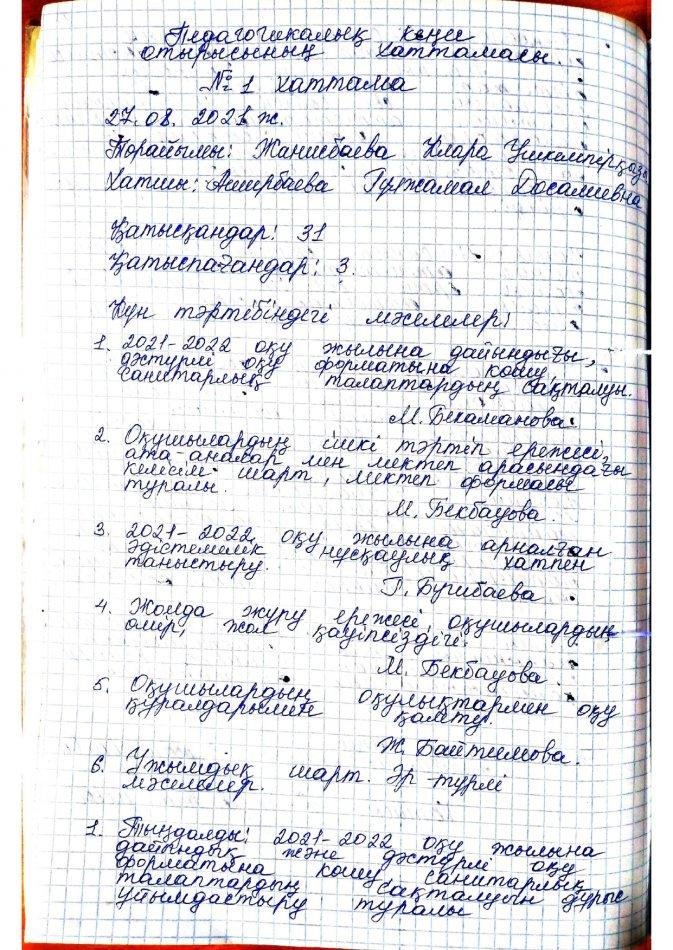 Педагогикалық кеңес
отырысының хаттамасы.
№ 1 хаттама
27.08.2021 ж.
Төрайымы: Жанисбаева Клара
Хатшы: Аширбаева Гүлжамал Досалиевна
Қатысқандар: 31
Қатыспағандар: 3.
Күн тәртібіндегі мәселелер:
1. 2021-2022 оқу жылына дайындығы,
дәстүрлі оқу форматына көшу,
санитарлық талаптардың сақталуы.
М. Бекаманова.
2. Оқушылардың ішкі тәртіп ережесі,
ата-аналар мен мектеп арасындағы
келісім шарт, мектеп формасы
туралы.
М. Бекбауова.
3. 2021-2022 оқу жылына арналған
әдістемелік нұсқаулық хатпен
таныстыру.
Г. Бугибаева
4. Жолда жүру ережесі, оқушылардың
өмір, жол қауіпсіздігі.
М. Бекбауова.
5. Оқушылардың оқулықтармен оқу
құралдарымен қамту.
Ж. Байтимова.
6. Ұжымдық шарт. Әр-түрлі
мәселелер.
1. Тыңдалды: 2021-2022 оқу жылына
дайындық және дәстүрлі оқу
форматына көшу санитарлық
талаптардың сақталуын дұрыс
ұйымдастыру туралы